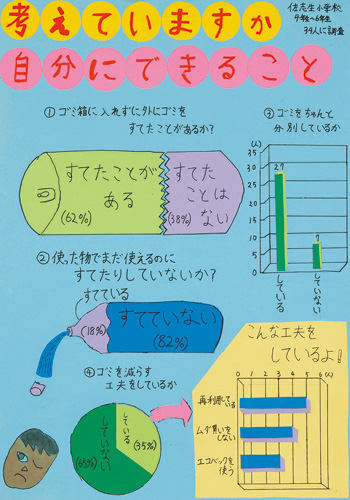 考えていますか
自分にできること
佐志生小学校
4年生～6年生
34人に調査
①ゴミ箱に入れずに外にゴミを
すてたことがあるか?
すてたことが
ある
(62%)
すてた
ことは
ない
(38%)
②使った物でまだ使えるのに
すてたりしていないか?
すてている
(18%)
すてていない
(82%)
③ゴミをちゃんと
分別しているか
(人)
35
30
25
20
15
10
5
0
27
7
している
していない
④ゴミを減らす
工夫をしているか
している
(35%)
していない
(65%)
こんな工夫を
しているよ!
0 1 2 3 4 5 6(人)
再利用している
ムダ買いを
しない
エコバックを
使う